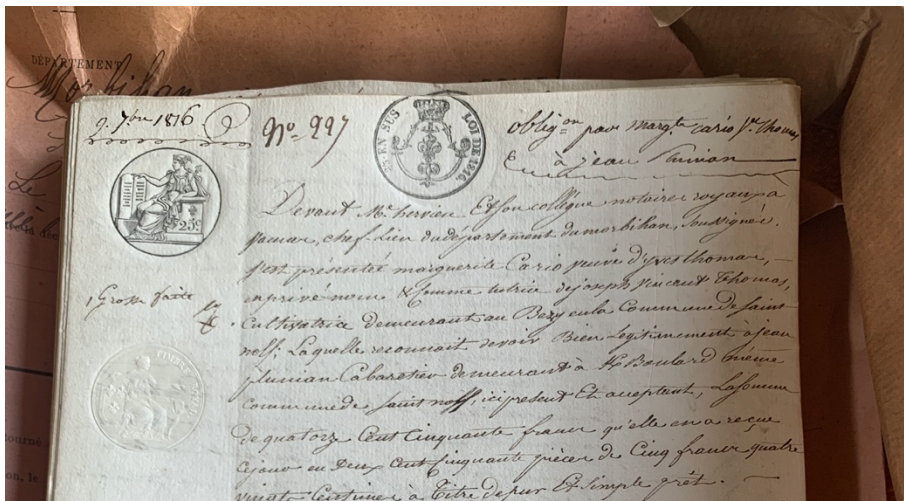 DÉPARTEMENT
Morbihan
9. 7bre 1816
No. 997
25 C. EN SUS
LOI DE 1816
oblig.on par Margte cario Ve thomas
à jean
25c
Devant Me hervieu Et son collègue notaires royaux a
vannes, chef-lieu du departement du morbihan, soussignés.
s'est présentée marguerite Cario veuve d'yves thomas,
en privé nom & comme tutrice de joseph vincent Thomas,
1 Grosse faite
Cultivatrice demeurant au Bezy en la Commune de Saint
nolf; Laquelle reconnait devoir Bien Legitimement à jean
Cabaretier demeurant à Boulard même
commune de saint nolff, ici présent Et acceptant, La somme
de quatorze Cent Cinquante francs qu'elle en a recue
en Deux Cent Cinquante pièces de Cinq francs quatre
vingts Centimes à Titre de pur Et simple prêt.